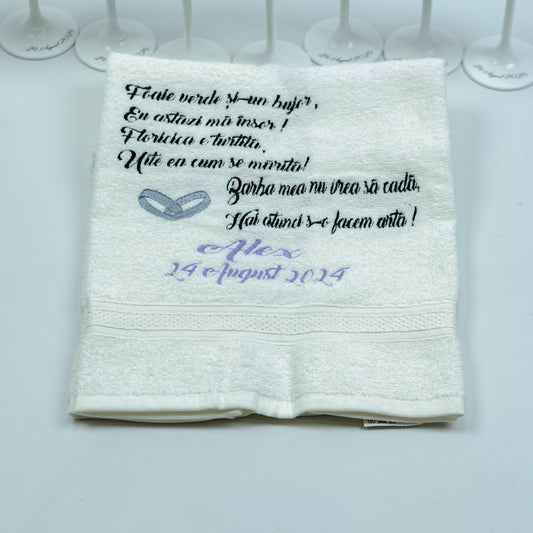 24 August 2024
24 August 2024
Foaie verde și-un bujor,
Eu astazi mă însor!
Floricica e turtita,
Uite ea cum se mărită!
Barba mea nu vrea să cadă,
Hai atunci s-o facem artă!
Alex
24 August 2024